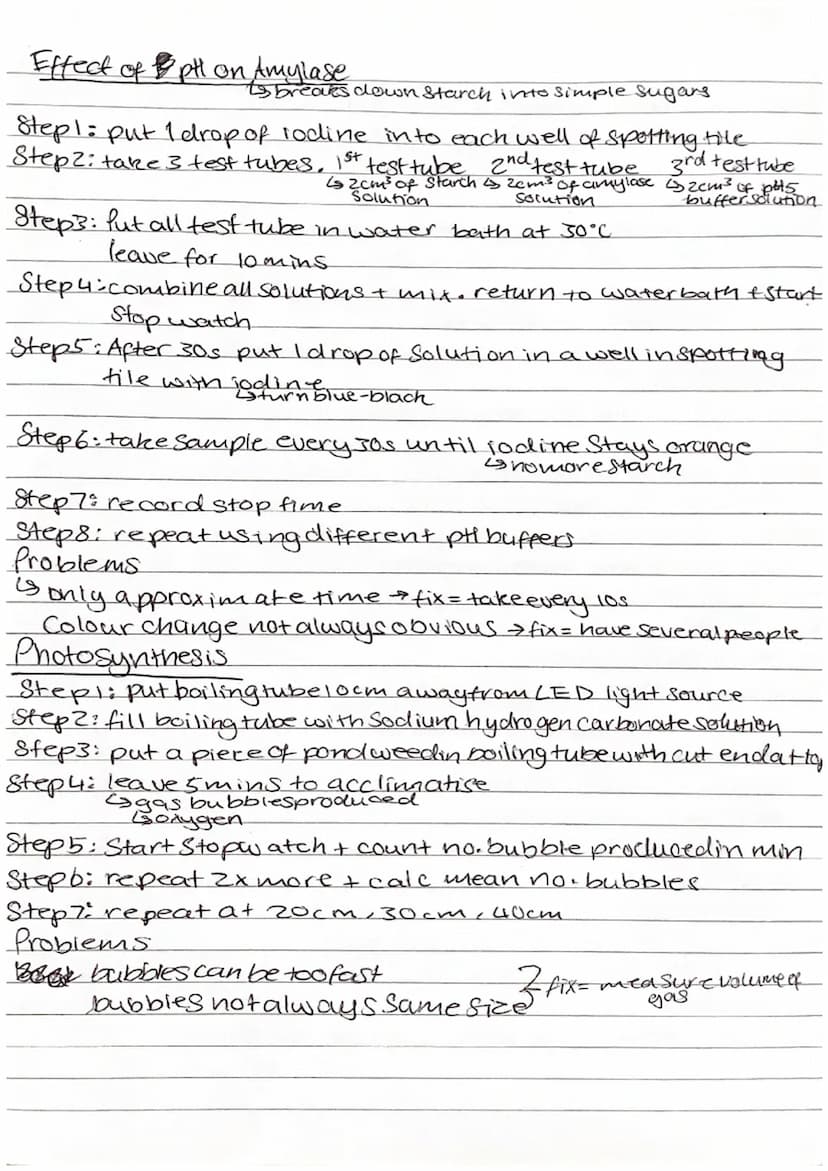 Effect of pH on Amylase
↳ breaks down starch into simple sugars
Step1: put 1 drop of iodine into each well of spotting tile
Step2: take 3 test tubes. 1st test tube 2nd test tube 3rd test tube
↳ 2cm³ of starch ↳ 2cm³ of amylase ↳ 2cm³ of pH5
solution solution buffer solution
Step3: Put all test tube in water bath at 30°C
leave for 10 mins
Step4: combine all solutions + mix. return to water bath + start
Stop watch
Step5: After 30s put 1 drop of solution in a well in spotting
tile with iodine
↳ turn blue-black
Step6: take sample every 30s until iodine stays orange
↳ no more starch
Step7: record stop time
Step8: repeat using different pH buffers
Problems
↳ only approximate time → fix = take every 10s
Colour change not always obvious → fix = have several people
Photosynthesis
Step1: put boiling tube 10cm away from LED light source
Step2: fill boiling tube with sodium hydrogen carbonate solution
Step3: put a piece of pondweed in boiling tube with cut end at top
Step4: leave 5 mins to acclimatise
↳ gas bubbles produced
↳ oxygen
Step5: Start Stopwatch + count no. bubble produced in min
Step6: repeat 2x more + calc mean no. bubbles
Step7: repeat at 20cm, 30cm, 40cm
Problems
bubbles can be too fast
bubbles not always same size } fix = measure volume of
gas